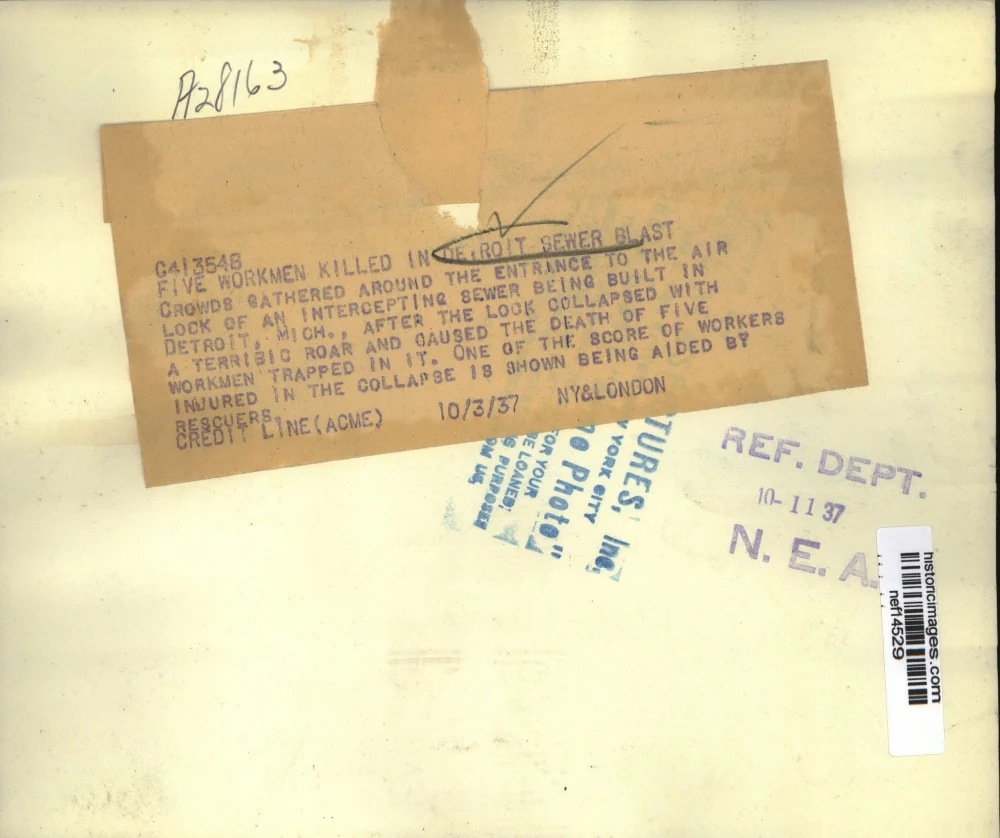 A28163
C413548
FIVE WORKMEN KILLED IN DETROIT SEWER BLAST
CROWDS GATHERED AROUND THE ENTRANCE TO THE AIR
LOCK OF AN INTERCEPTING SEWER BEING BUILT IN
DETROIT, MICH., AFTER THE LOCK COLLAPSED WITH
A TERRIBIC ROAR AND CAUSED THE DEATH OF FIVE
WORKMEN TRAPPED IN IT. ONE OF THE SCORE OF WORKERS
INJURED IN THE COLLAPSE IS SHOWN BEING AIDED BY
RESCUERS.
CREDIT LINE(ACME) 10/3/37 NY&LONDON
TURES, Inc.
YORK CITY
Photo"
FOR YOUR
BE LOANED:
PURPOSES
OM US,
REF. DEPT.
10-11 37
N. E. A.
historicimages.com
nef14529